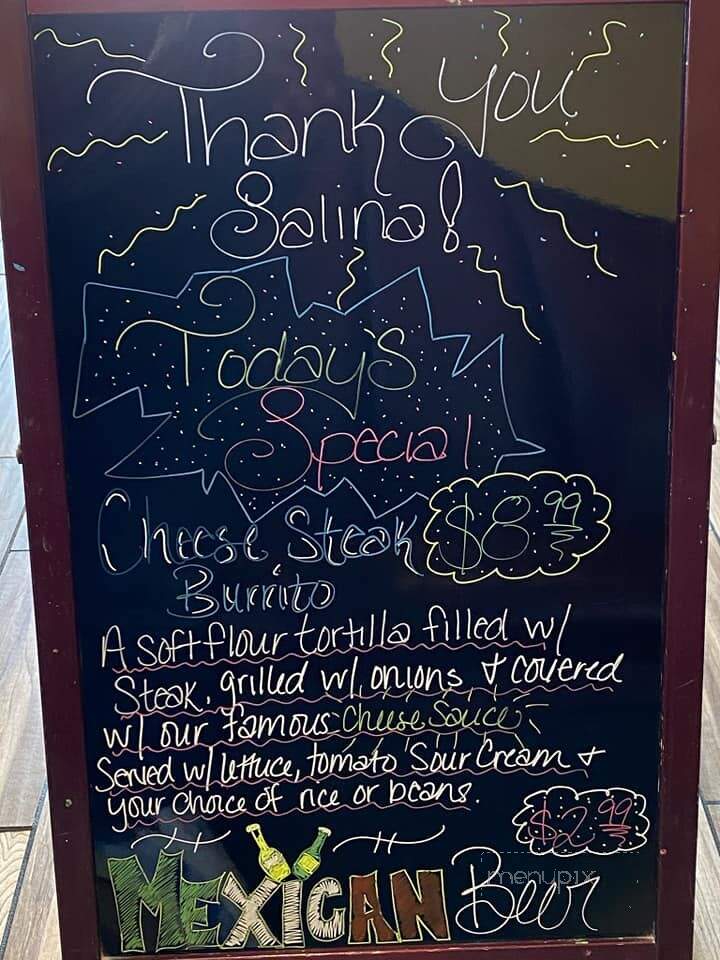 Thank you
Salina!
Today's
Special
Cheese Steak $8.99
Burrito
A soft flour tortilla filled w/
Steak, grilled w/ onions & covered
w/ our famous Cheese Sauce
Served w/ lettuce, tomato Sour Cream &
your choice of rice or beans.
$2.99
MEXICAN Beer
menupix